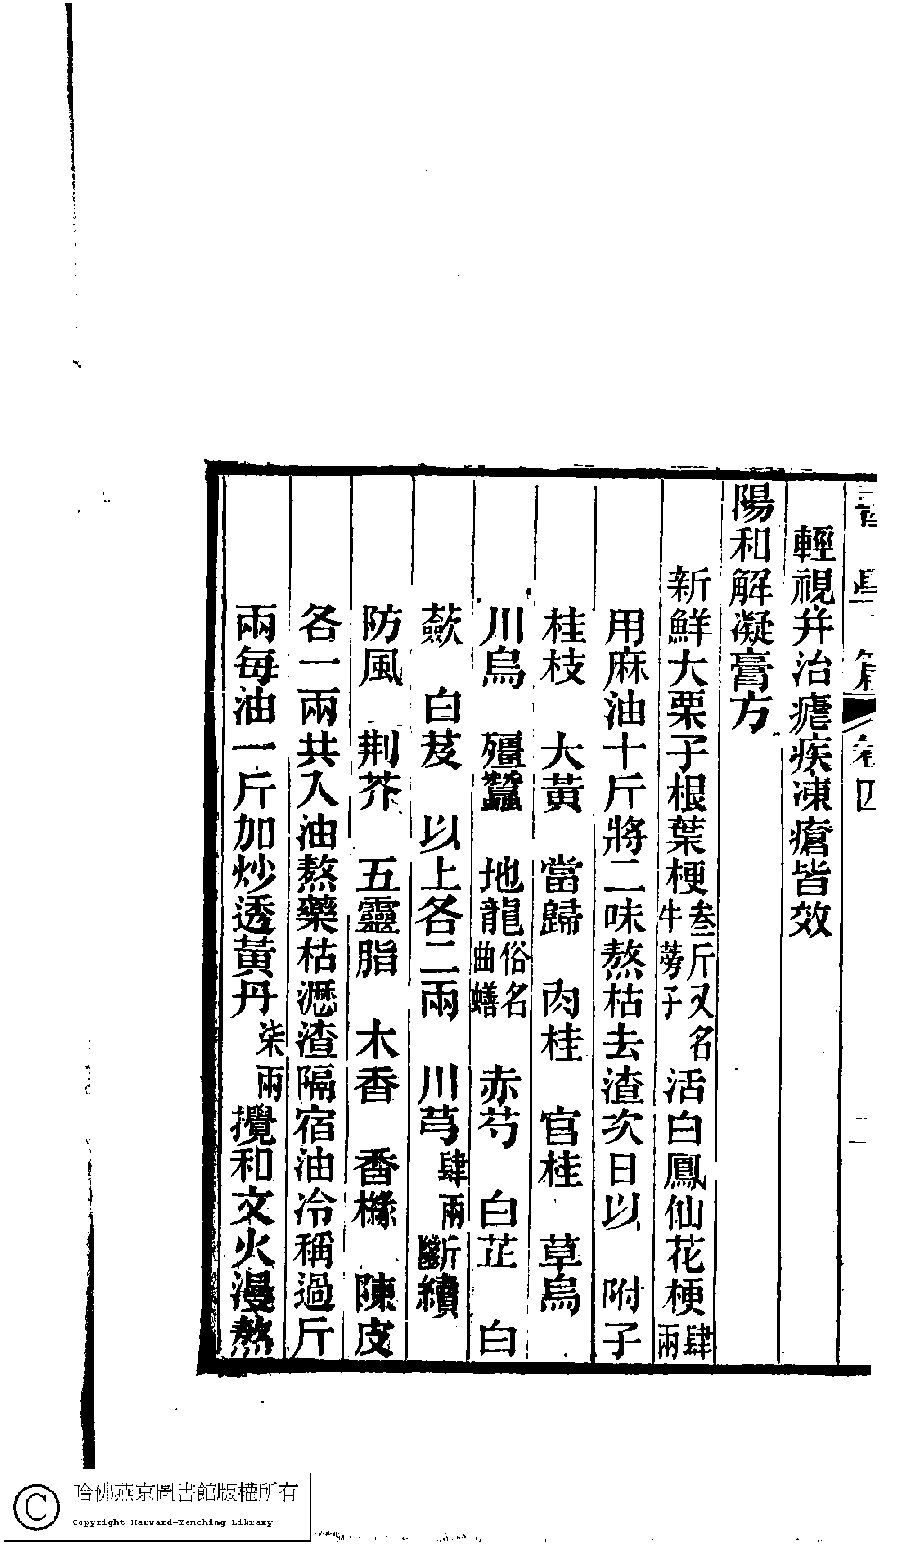 卷四
二
輕視并治瘧疾凍瘡皆效
陽和解凝膏方
新鮮大栗子根葉梗叁斤又名牛蒡子活白鳳仙花梗肆兩
用麻油十斤將二味熬枯去渣次日以 附子
桂枝 大黃 當歸 肉桂 官桂 草烏
川烏 殭蠶 地龍俗名曲蟮 赤芍 白芷 白
蘞 白芨 以上各二兩 川芎肆兩 斷續
防風 荆芥 五靈脂 木香 香櫞 陳皮
各一兩共入油熬藥枯瀝渣隔宿油冷稱過斤
兩每油一斤加炒透黃丹柒兩攪和文火漫熬
哈佛燕京圖書館版權所有
Copyright Harvard-Yenching Library